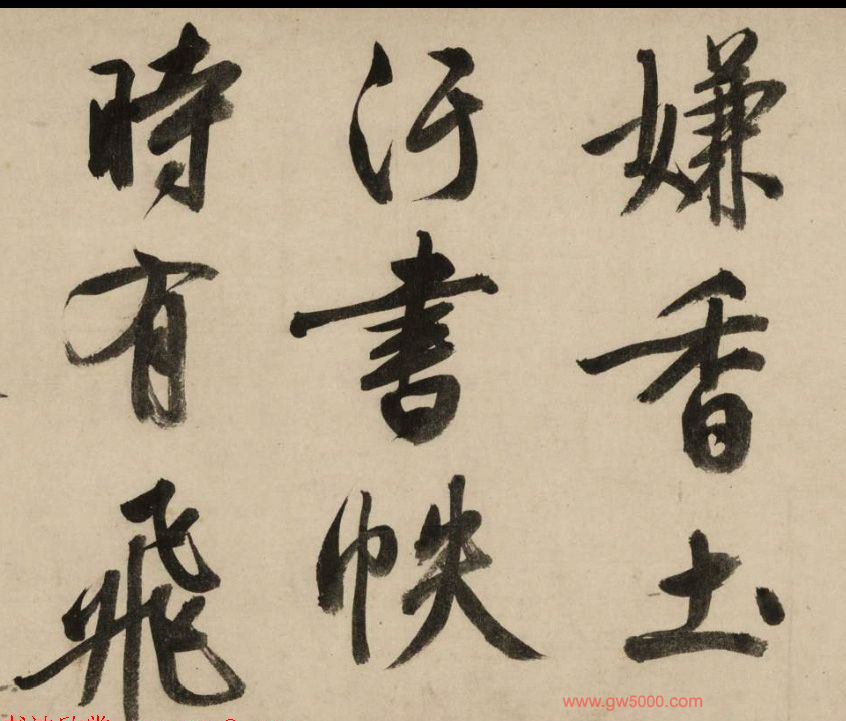 嫌香土
汙書帙
時有飛
www.gw5000.com